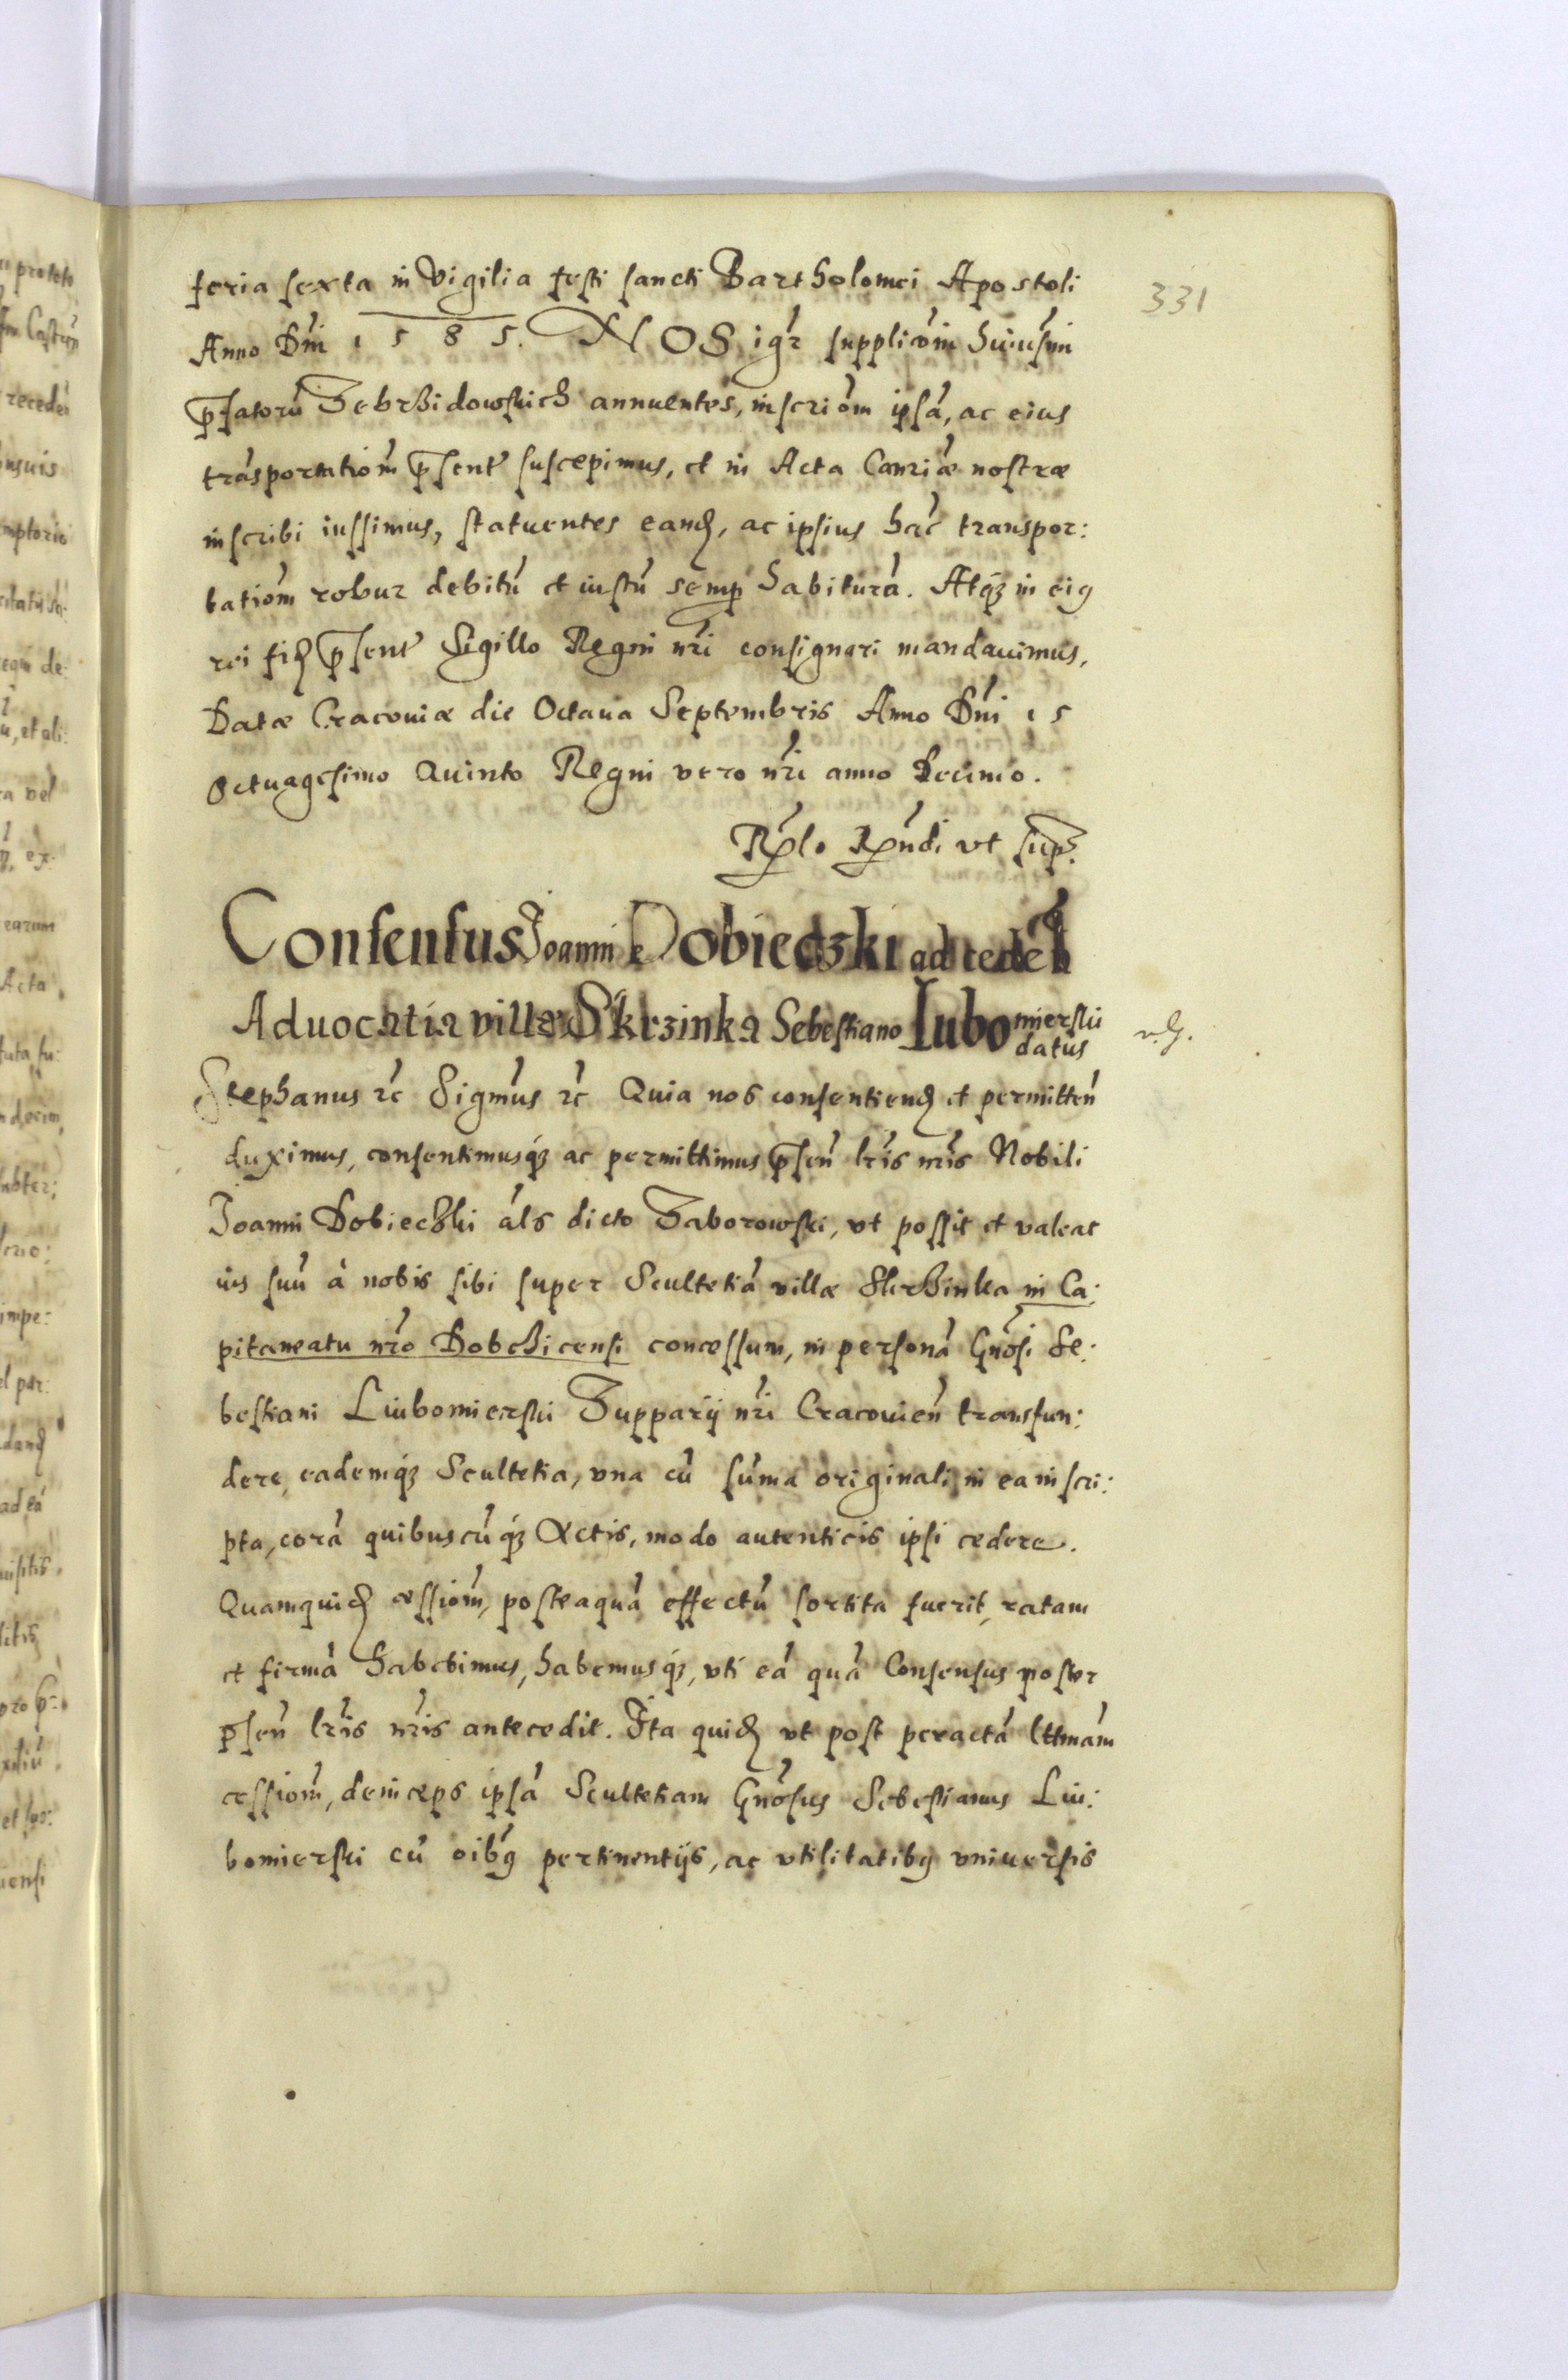 331
feria sexta in Vigilia festi sancti Bartholomei Apostoli
Anno Dni 1585. NOS igr suppliconi huiusmi
pfatoru Zebrzidowskich annuentes, inscriom ipsa, ac eius
trasportationm psent suscepimus, et in Acta Canriæ nostræ
inscribi iussimus, statuentes eand, ac ipsius hac transpor:
tationm robur debitu et iustu semp habitura. Atq3 in eig
rei fid psent Sigillo Regni nri consignari mandauimus,
Datæ Cracouiæ die Octaua Septembris Anno Dni 15
octuagesimo Quinto Regni vero nri anno Decimo.
ut sup
Consensus Joanni Dobieczki ad ceded
Aduocatia villæ Skrzinka Sebestiano Lubomierski datus
Stephanus rc Sigmus rc Quia nos consentiend et permitten
duximus, consentimusq3 ac permittimus psen lris nris Nobili
Joanni Dobieczki als dicto Zaborowski, vt possit et valeat
ius suu à nobis sibi super Scultetia villæ Skrzinka in Ca:
pitaneatu nro Dobczicensi concessum, in persona Gnosi Se:
bestiani Liubomierski Zupparij nri Cracouien transfun:
dere, eademq3 Scultetia, vna cu suma originali in ea inscri:
pta, cora quibuscuq3 Actis, modo autenticis ipsi cedere.
Quamquid cessiom, posteaqua effectu sortita fuerit, ratam
et firma habebimus, habemusq3, vti ea qua Consensus noster
psen lris nris antecedit. Ita quid vt post peracta lttimam
cessiom, deinceps ipsa Scultetiam Gnosus Sebestianus Liu:
bomierski cu oibg pertinentijs, ac vtilitatibg vniuersis